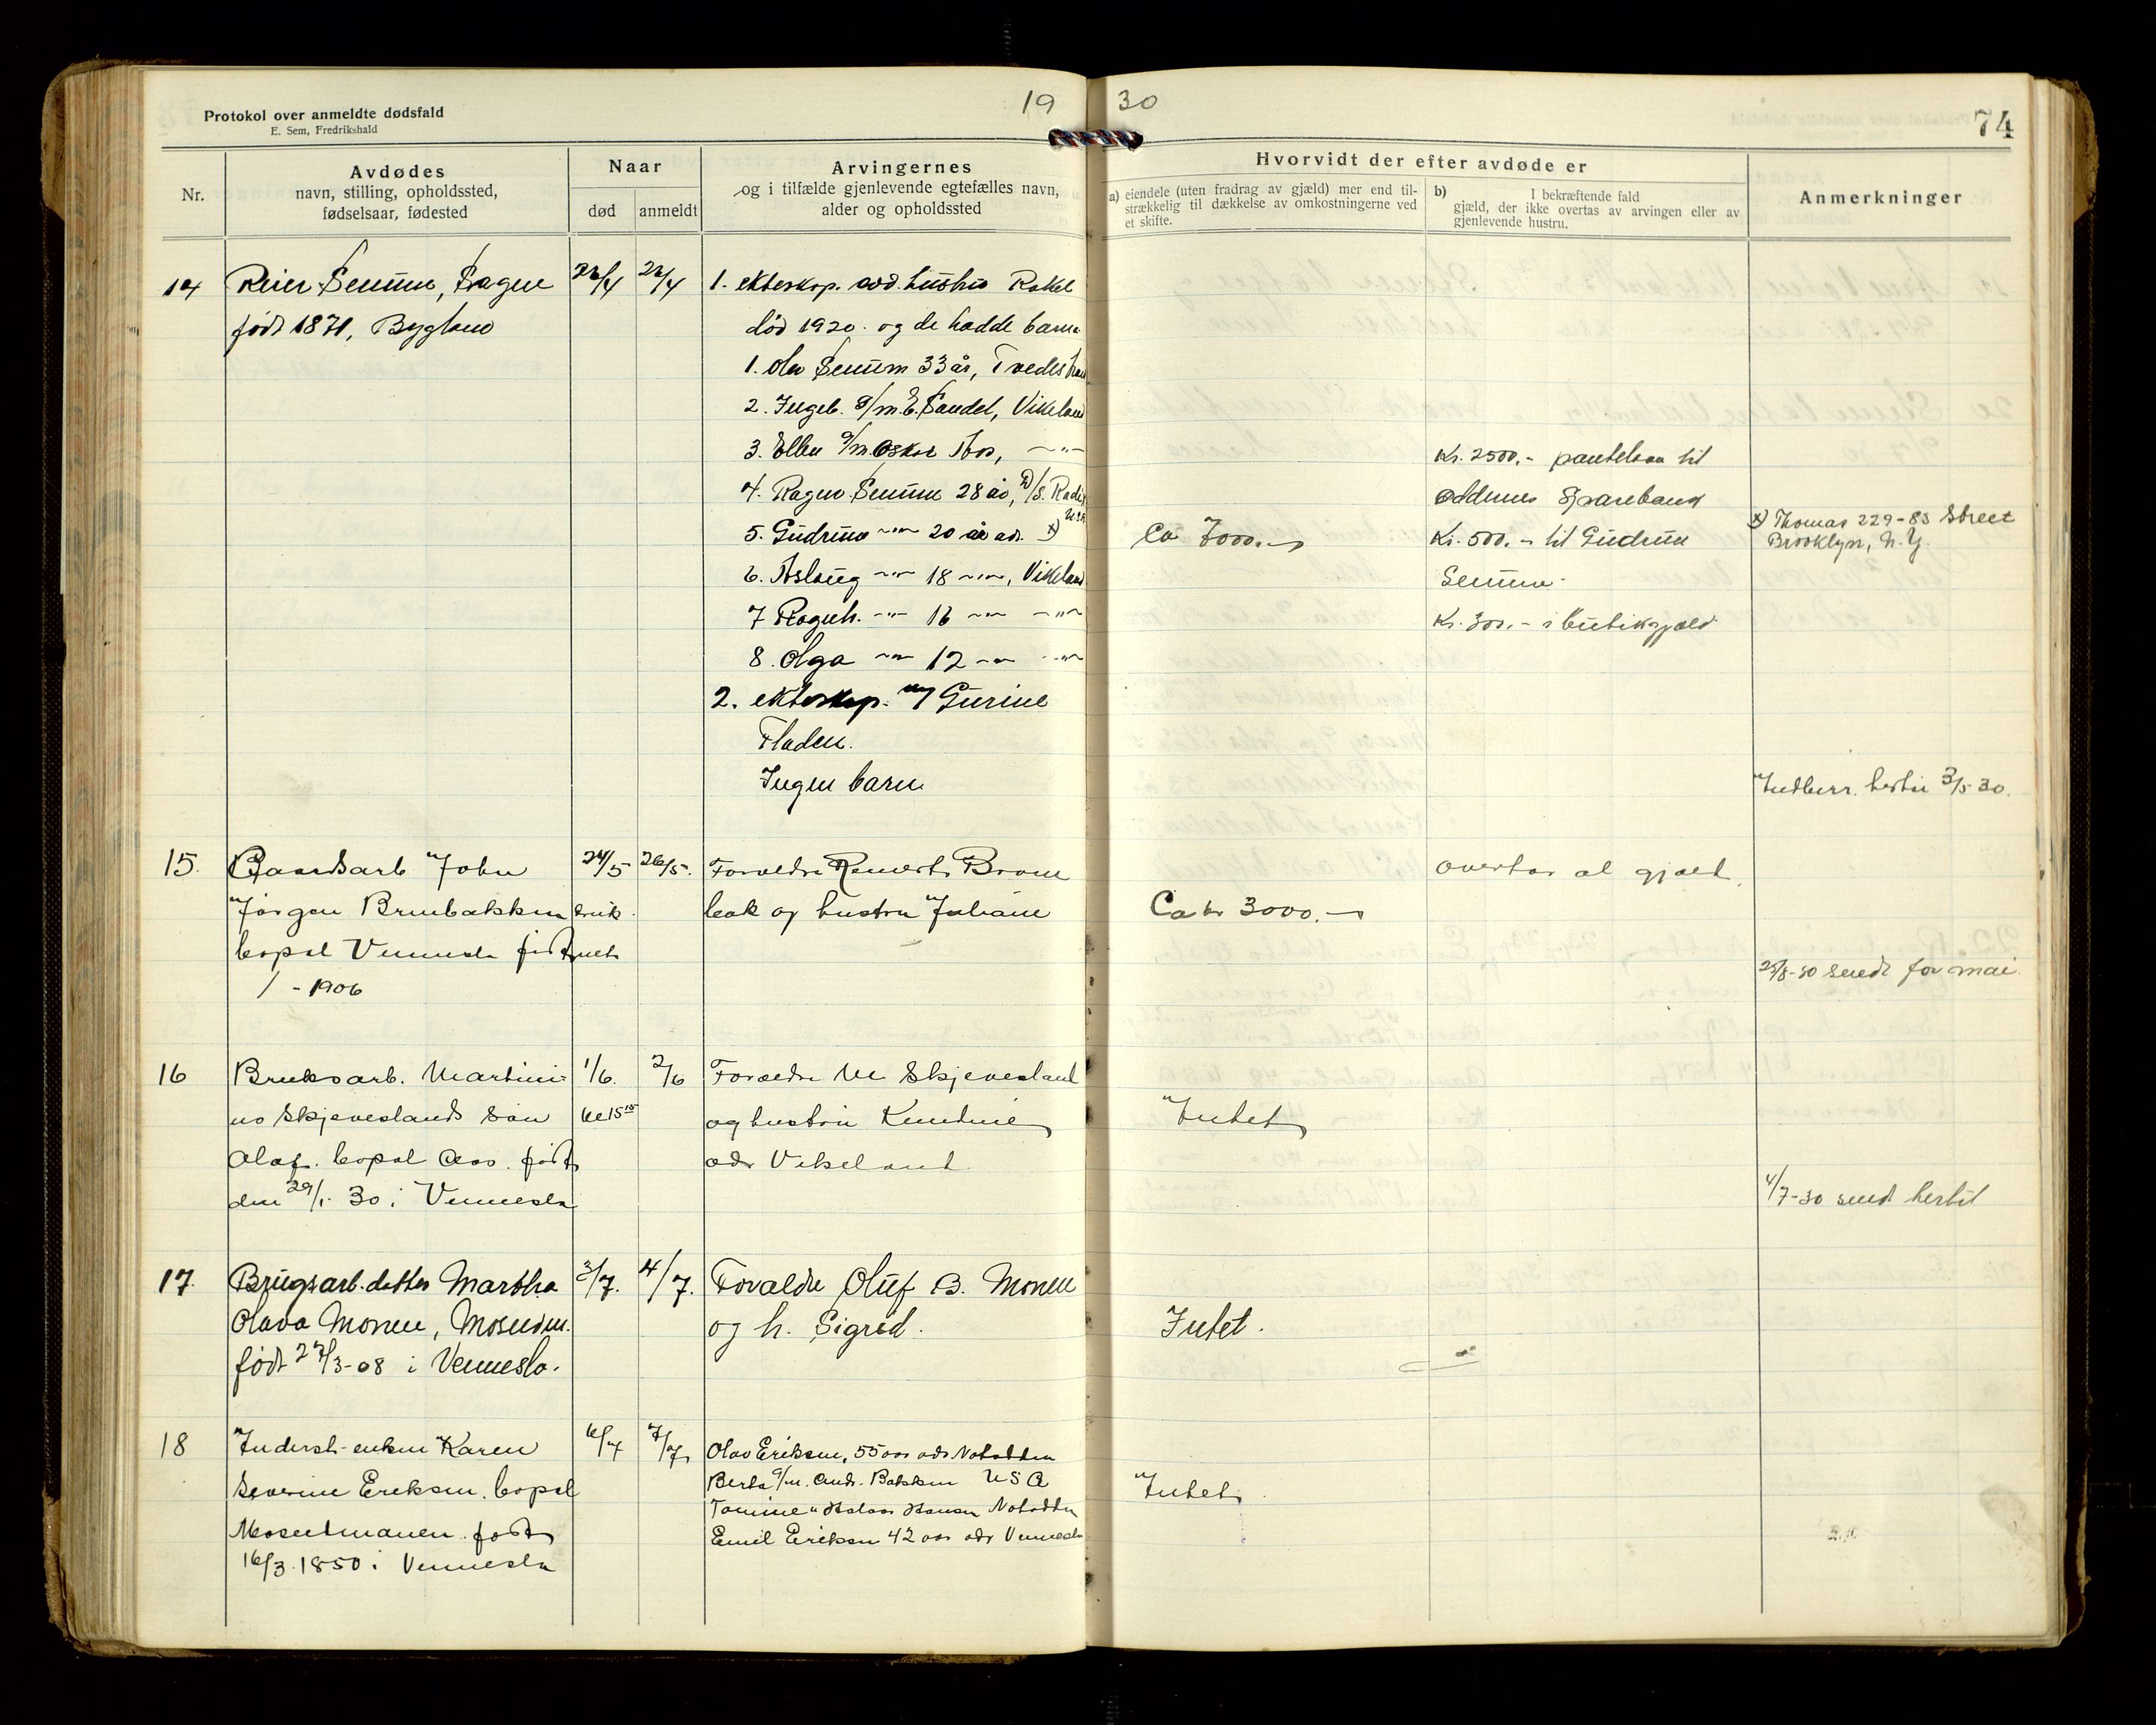 Protokol over anmeldte dødsfald
E. Sem, Fredrikshald
19 30
74
Nr.
Avdødes
navn, stilling, opholdssted,
fødselsaar, fødested
Naar
død anmeldt
Arvingernes
og i tilfælde gjenlevende egtefælles navn,
alder og opholdssted
Hvorvidt der efter avdøde er
a) eiendele (uten fradrag av gjæld) mer end til-
strækkelig til dækkelse av omkostningerne ved
et skifte.
b) I bekræftende fald
gjæld, der ikke overtas av arvingen eller av
gjenlevende hustru.
Anmerkninger
14 Reier Senum,
født 1871, Bygland
1. ekteskap. avd. hustru Rakel
død 1920. og de hadde barna
1. Olav Senum 33 år, Tvedestrand
2. Ingeb. g/m. E. Sandel, Vikeland
3. Ellen g/m. Oskar Aas, -"-
4. Ragnv. Senum 28 år,
5. Gudrun -"- 20 år adr. x)
6. Aslaug -"- 18 -"-, Vikeland
7 Ragnh. -"- 16 -"- -"-
8. Olga -"- 12 -"- -"-
2. ekteskap. m/ Gurine
Fladen.
Ingen barn
Ca 7000.-
Kr. 2500.- pantelaan til
Oddernes Sparebank
Kr. 500.- til Gudrun
Senum.
Kr. 300.- i butikgjæld
x) Thomas 229-83 Street
Brooklyn, N.Y.
Indberr. hertil 3/5 30.
15. Gaardsarb John 24/5 26/5.
Jørgen Brubakken druk-
bopæl Vennesla født net
/ - 1906
Foreldre Remert Brom
bak og hustru Juliane
Ca kr 3000.-
overtar al gjæld.
25/8-30 sendt for mai
16 Bruksarb. Martini- 1/6. 2/6
us Skjeveslands søn kl 15 15
Olaf. bopæl Aas. født
den 29/1. 30 i Vennesla
Foreldre M Skjevesland
og hustru Kundine
adr Vikeland
Intet
4/7-30 send hertil
17. Brugsarb. datter Martha 3/7. 4/7.
Olava Monen, Moseidm.
født 27/3-08 i Vennesla.
Foreldre Oluf B. Monen
og h. Sigrid.
Intet.
18 Inderst-enken Karen 6/7 7/7
Severine Eriksen. bopæl
Moseidmanen. født
16/3. 1850 i Vennesla
Olav Eriksen, 55 aar adr Notodden
Berta g/m. And. Bakken U S A
Tomine " Halvor Hansen Notodden
Emil Eriksen 42 aar adr Vennesla
Intet